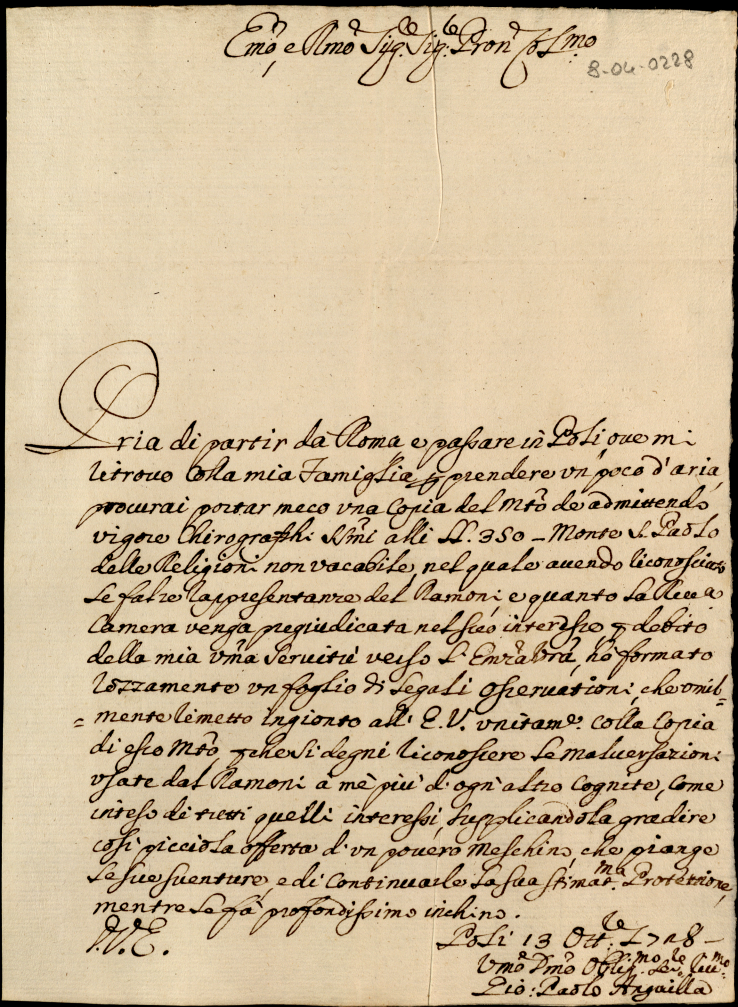 Emo, e Rmo Sig.re Sig.re Pron.e Col.mo
8-04-0228
Pria di partir da Roma e passare in Poli, oue mi
ritrouo colla mia Famiglia p prendere vn poco d'aria,
procurai portar meco vna Copia del Mto de admittendo
vigore Chirographi SSmi alli LL. 350 – Monte S. Paolo
delle Religioni non vacabile, nel quale auendo riconosciuto
le false rappresentanze del Ramoni e quanto la Reu a
Camera venga pregiudicata nel suo interesse p debito
della mia vma seruitù verso l'Emza Vra, hò formato
rozzamente vn foglio di legali osseruationi, che vmil=
=mente rimetto ingionto all' E.V. vnitam.e colla Copia
di esso Mto, p che si degni riconoscere le maluersazioni
vsate dal Ramoni à mè più d'ogn'altro cognite, come
inteso di tutti quelli interessi, supplicandola gradire
così picciola offerta d'vn pouero Meschino, che piange
le sue suenture, e di continuarle la sua stimat.ma Protettione,
mentre le fà profondissimo inchino.
D.V.E.
Poli 13 Ott.re 1718 –
Vmo Dmo Oblig.mo Ser.re
Gio: Paolo Anguilla